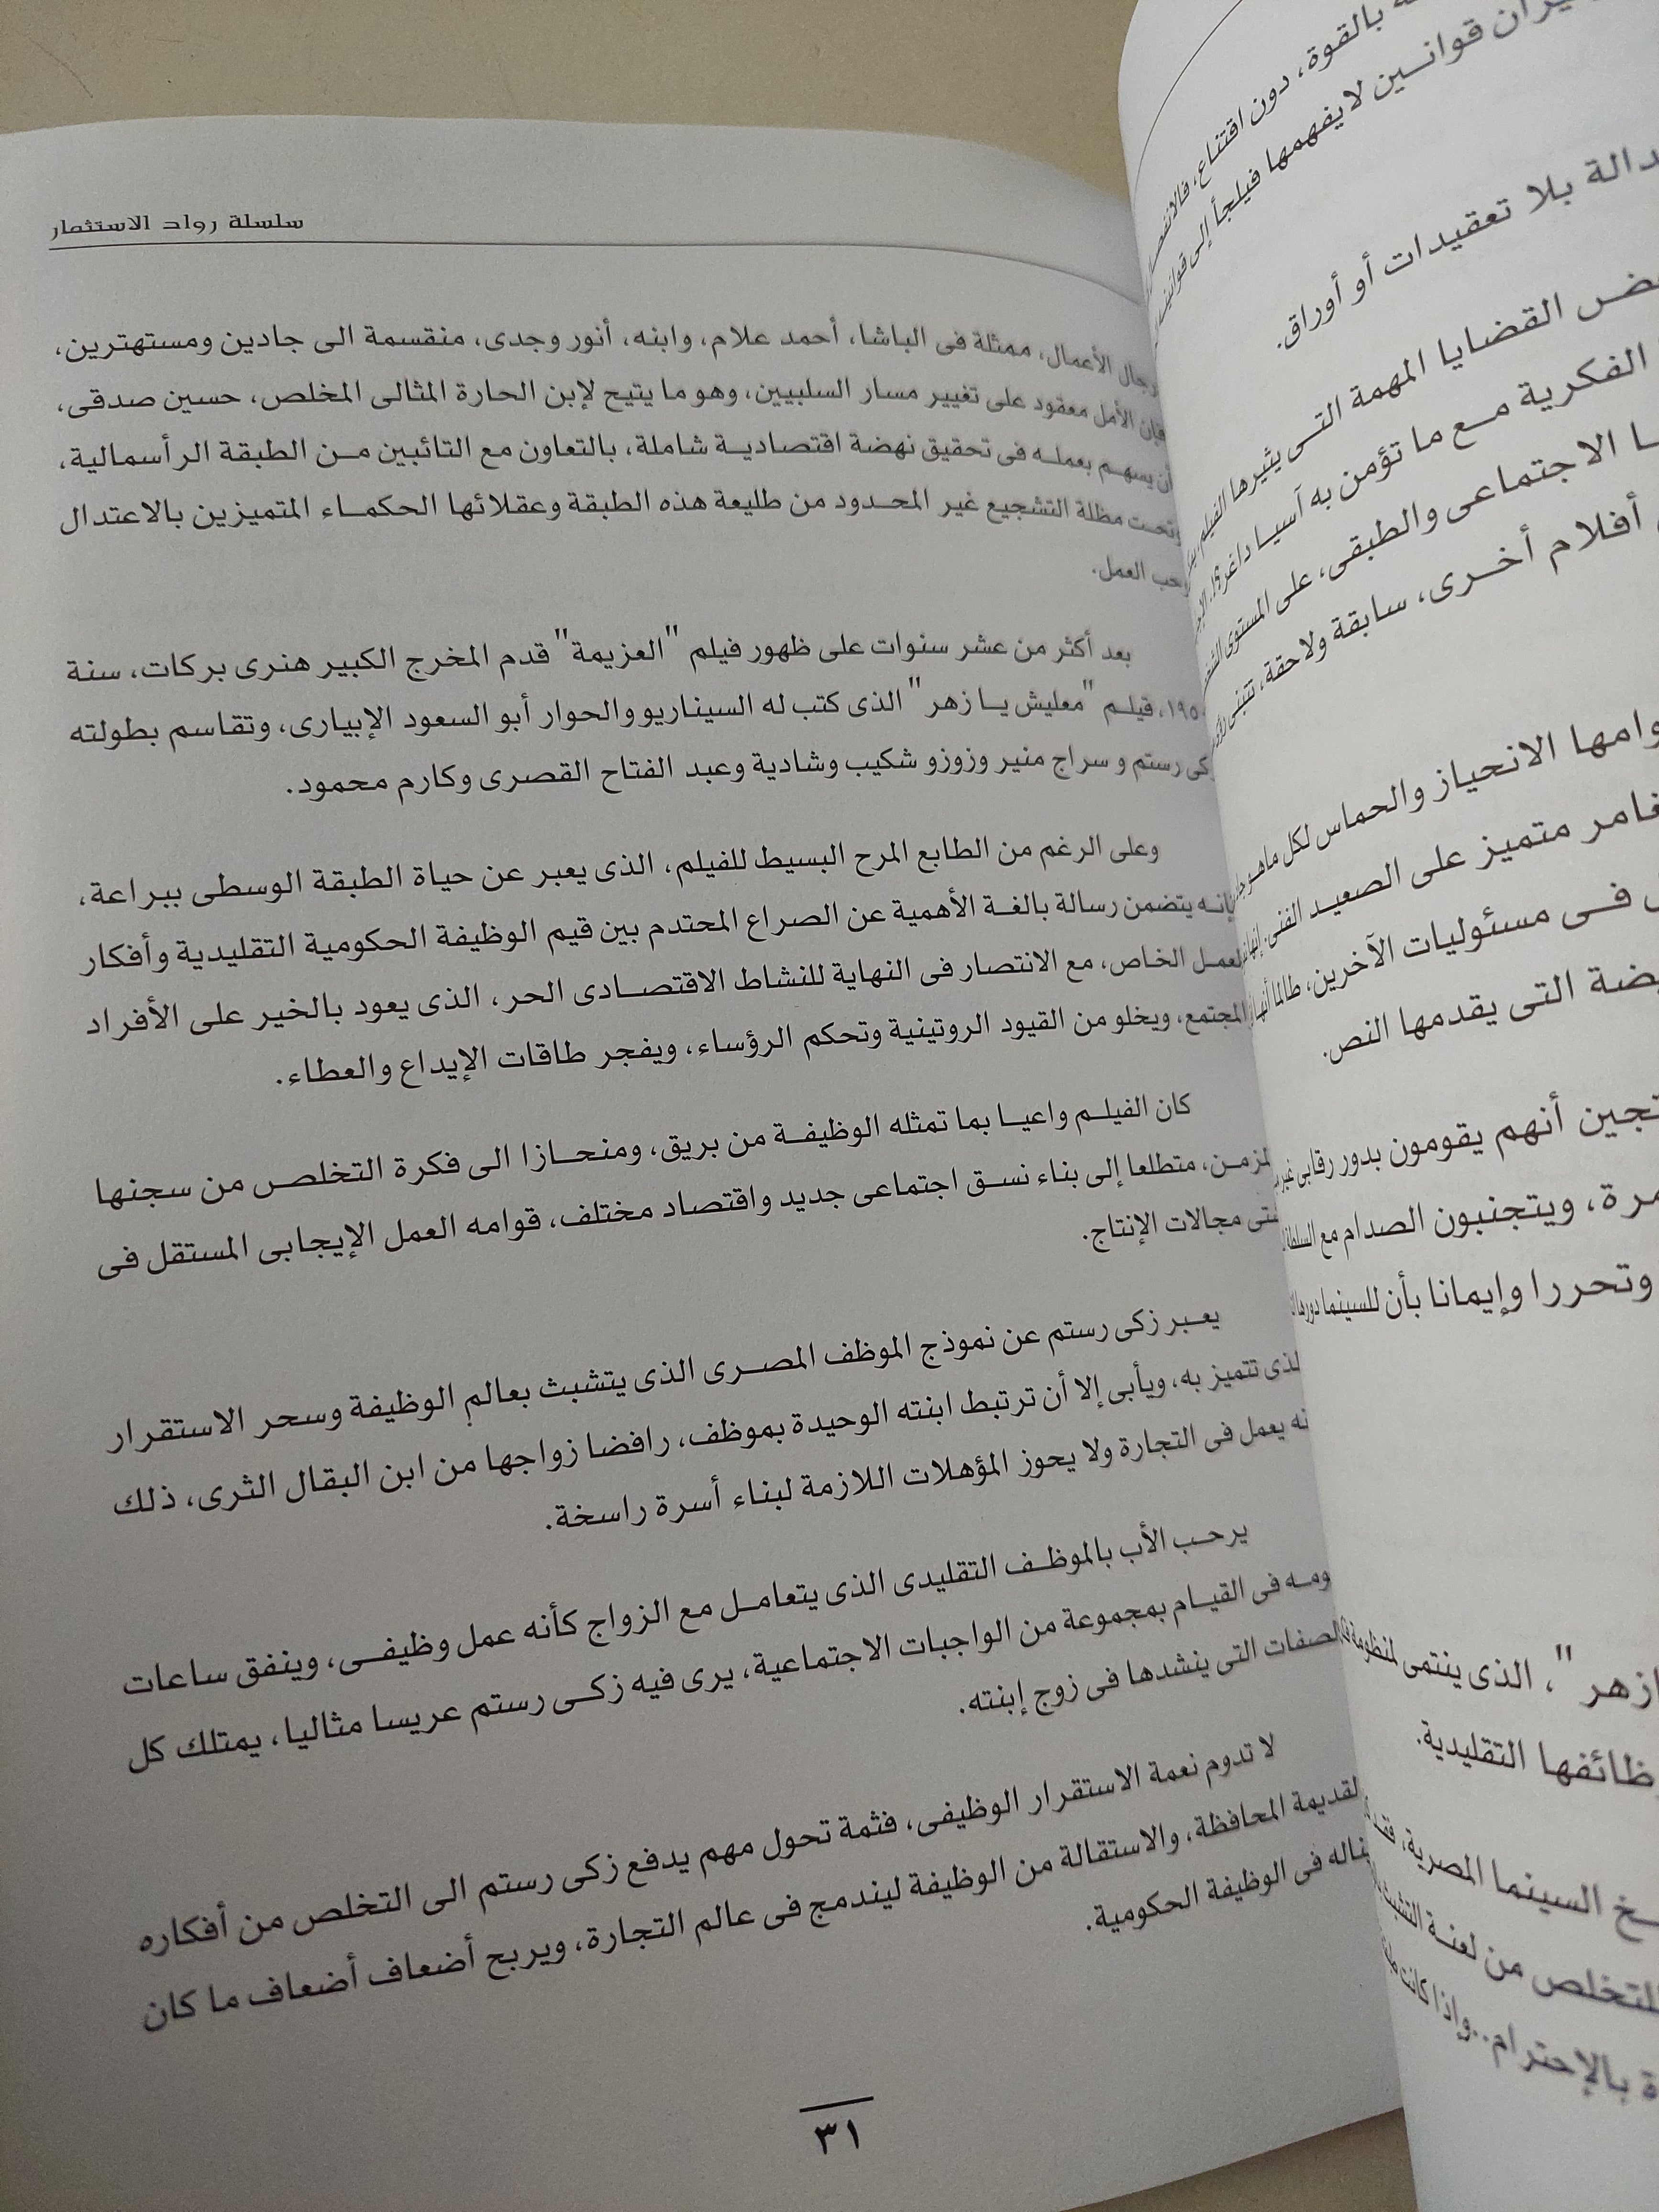 سلسلة رواد الاستثمار
رجال الأعمال، ممثلة فى الباشا، أحمد علام، وابنه، أنور وجدى، منقسمة الى جادين ومستهترين،
فإن الأمل معقود على تغيير مسار السلبيين، وهو ما يتيح لإبن الحارة المثالى المخلص، حسين صدقى،
أن يسهم بعمله فى تحقيق نهضة اقتصادية شاملة، بالتعاون مع التائبين من الطبقة الرأسمالية،
وتحت مظلة التشجيع غير المحدود من طليعة هذه الطبقة وعقلائها الحكماء المتميزين بالاعتدال
وحب العمل.
بعد أكثر من عشر سنوات على ظهور فيلم "العزيمة" قدم المخرج الكبير هنرى بركات، سنة
١٩٥٠، فيلم "معليش يا زهر" الذى كتب له السيناريو والحوار أبو السعود الإبيارى، وتقاسم بطولته
زكى رستم و سراج منير وزوزو شكيب وشادية وعبد الفتاح القصرى وكارم محمود.
وعلى الرغم من الطابع المرح البسيط للفيلم، الذى يعبر عن حياة الطبقة الوسطى ببراعة،
فإنه يتضمن رسالة بالغة الأهمية عن الصراع المحتدم بين قيم الوظيفة الحكومية التقليدية وأفكار
العمل الخاص، مع الانتصار فى النهاية للنشاط الاقتصادى الحر، الذى يعود بالخير على الأفراد
والمجتمع، ويخلو من القيود الروتينية وتحكم الرؤساء، ويفجر طاقات الإيداع والعطاء.
كان الفيلم واعيا بما تمثله الوظيفة من بريق، ومنحازا الى فكرة التخلص من سجنها
المزمن، متطلعا إلى بناء نسق اجتماعى جديد واقتصاد مختلف، قوامه العمل الإيجابى المستقل فى
شتى مجالات الإنتاج.
يعبر زكى رستم عن نموذج الموظف المصرى الذى يتشبث بعالم الوظيفة وسحر الاستقرار
الذى تتميز به، ويأبى إلا أن ترتبط ابنته الوحيدة بموظف، رافضا زواجها من ابن البقال الثرى، ذلك
أنه يعمل فى التجارة ولا يحوز المؤهلات اللازمة لبناء أسرة راسخة.
يرحب الأب بالموظف التقليدى الذى يتعامل مع الزواج كأنه عمل وظيفى، وينفق ساعات
يومه فى القيام بمجموعة من الواجبات الاجتماعية، يرى فيه زكى رستم عريسا مثاليا، يمتلك كل
الصفات التى ينشدها فى زوج إبنته.
لا تدوم نعمة الاستقرار الوظيفى، فثمة تحول مهم يدفع زكى رستم الى التخلص من أفكاره
القديمة المحافظة، والاستقالة من الوظيفة ليندمج فى عالم التجارة، ويربح أضعاف أضعاف ما كان
يناله فى الوظيفة الحكومية.
٣١
بالقوة، دون اقتناع،
قوانين لا يفهمها فيلجأ إلى
بلا تعقيدات أو أوراق.
القضايا المهمة التى يثيرها الفيلم
الفكرية مع ما تؤمن به آسيا داغر
الاجتماعى والطبقى، على المستوى
أفلام أخرى، سابقة ولاحقة،
الانحياز والحماس لكل ما هو
متميز على الصعيد الفنى
فى مسئوليات الآخرين، طالما أنها
التى يقدمها النص.
أنهم يقومون بدور رقابى
ويتجنبون الصدام مع السلطة
وتحررا وإيمانا بأن للسينما دورها
، الذى ينتمى لمنظومة
التقليدية.
السينما المصرية،
للتخلص من لعنة التشبث
بالإحترام..وإذا كانت